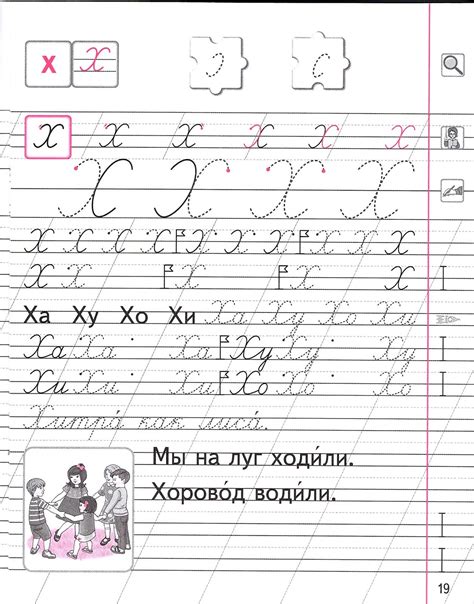 х Х
Х Х Х Х Х Х
Х Х Х Х
Х Х Х Х Х Х Х Х Х Х
Х Х Х Х Х
Ха Ху Хо Хи Ха Ху Хо Хи
Ха Ха Ха Ху Ху Ху
Хи Хи Хи Хо Хо Хо
Хитра́ как лиса́.
Мы на луг ходи́ли.
Хорово́д води́ли.
19